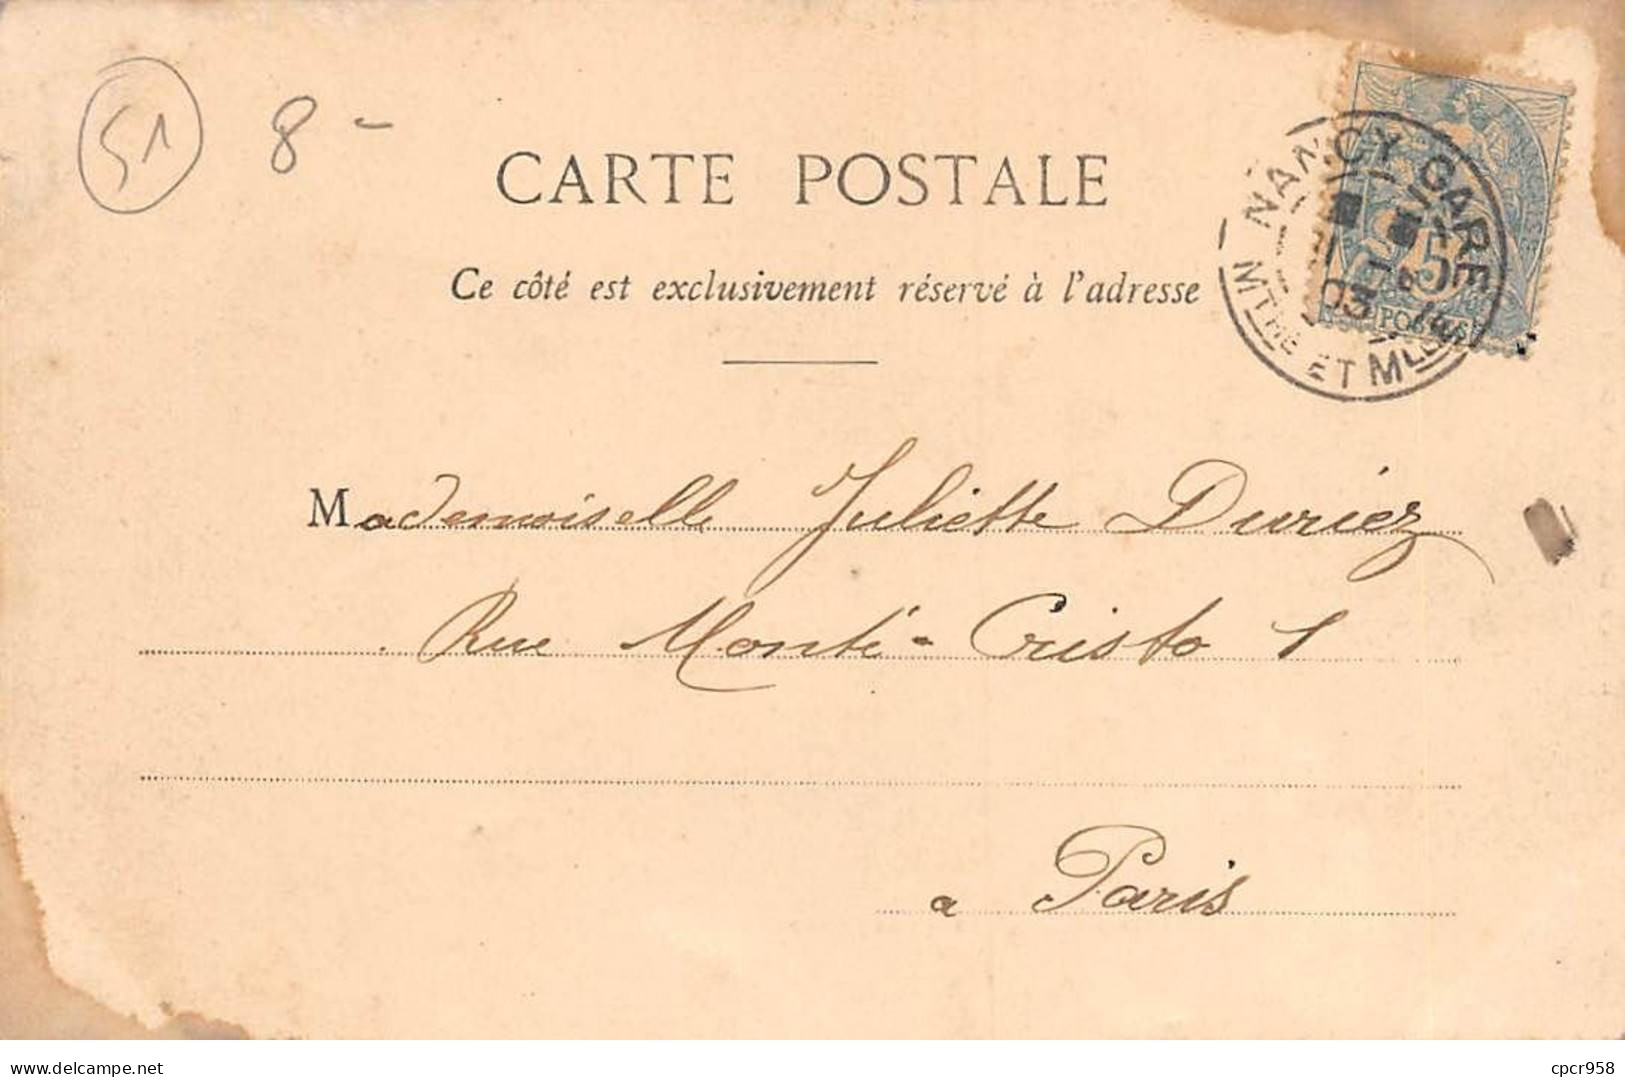 51 8 -
CARTE POSTALE
Ce côté est exclusivement réservé à l'adresse
NANCY GARE
MTHE ET MLLE
5
POSTES
Mademoiselle Juliette Duriez
Rue Monté-Cristo 1
a Paris
delcampe.net
cpcr958